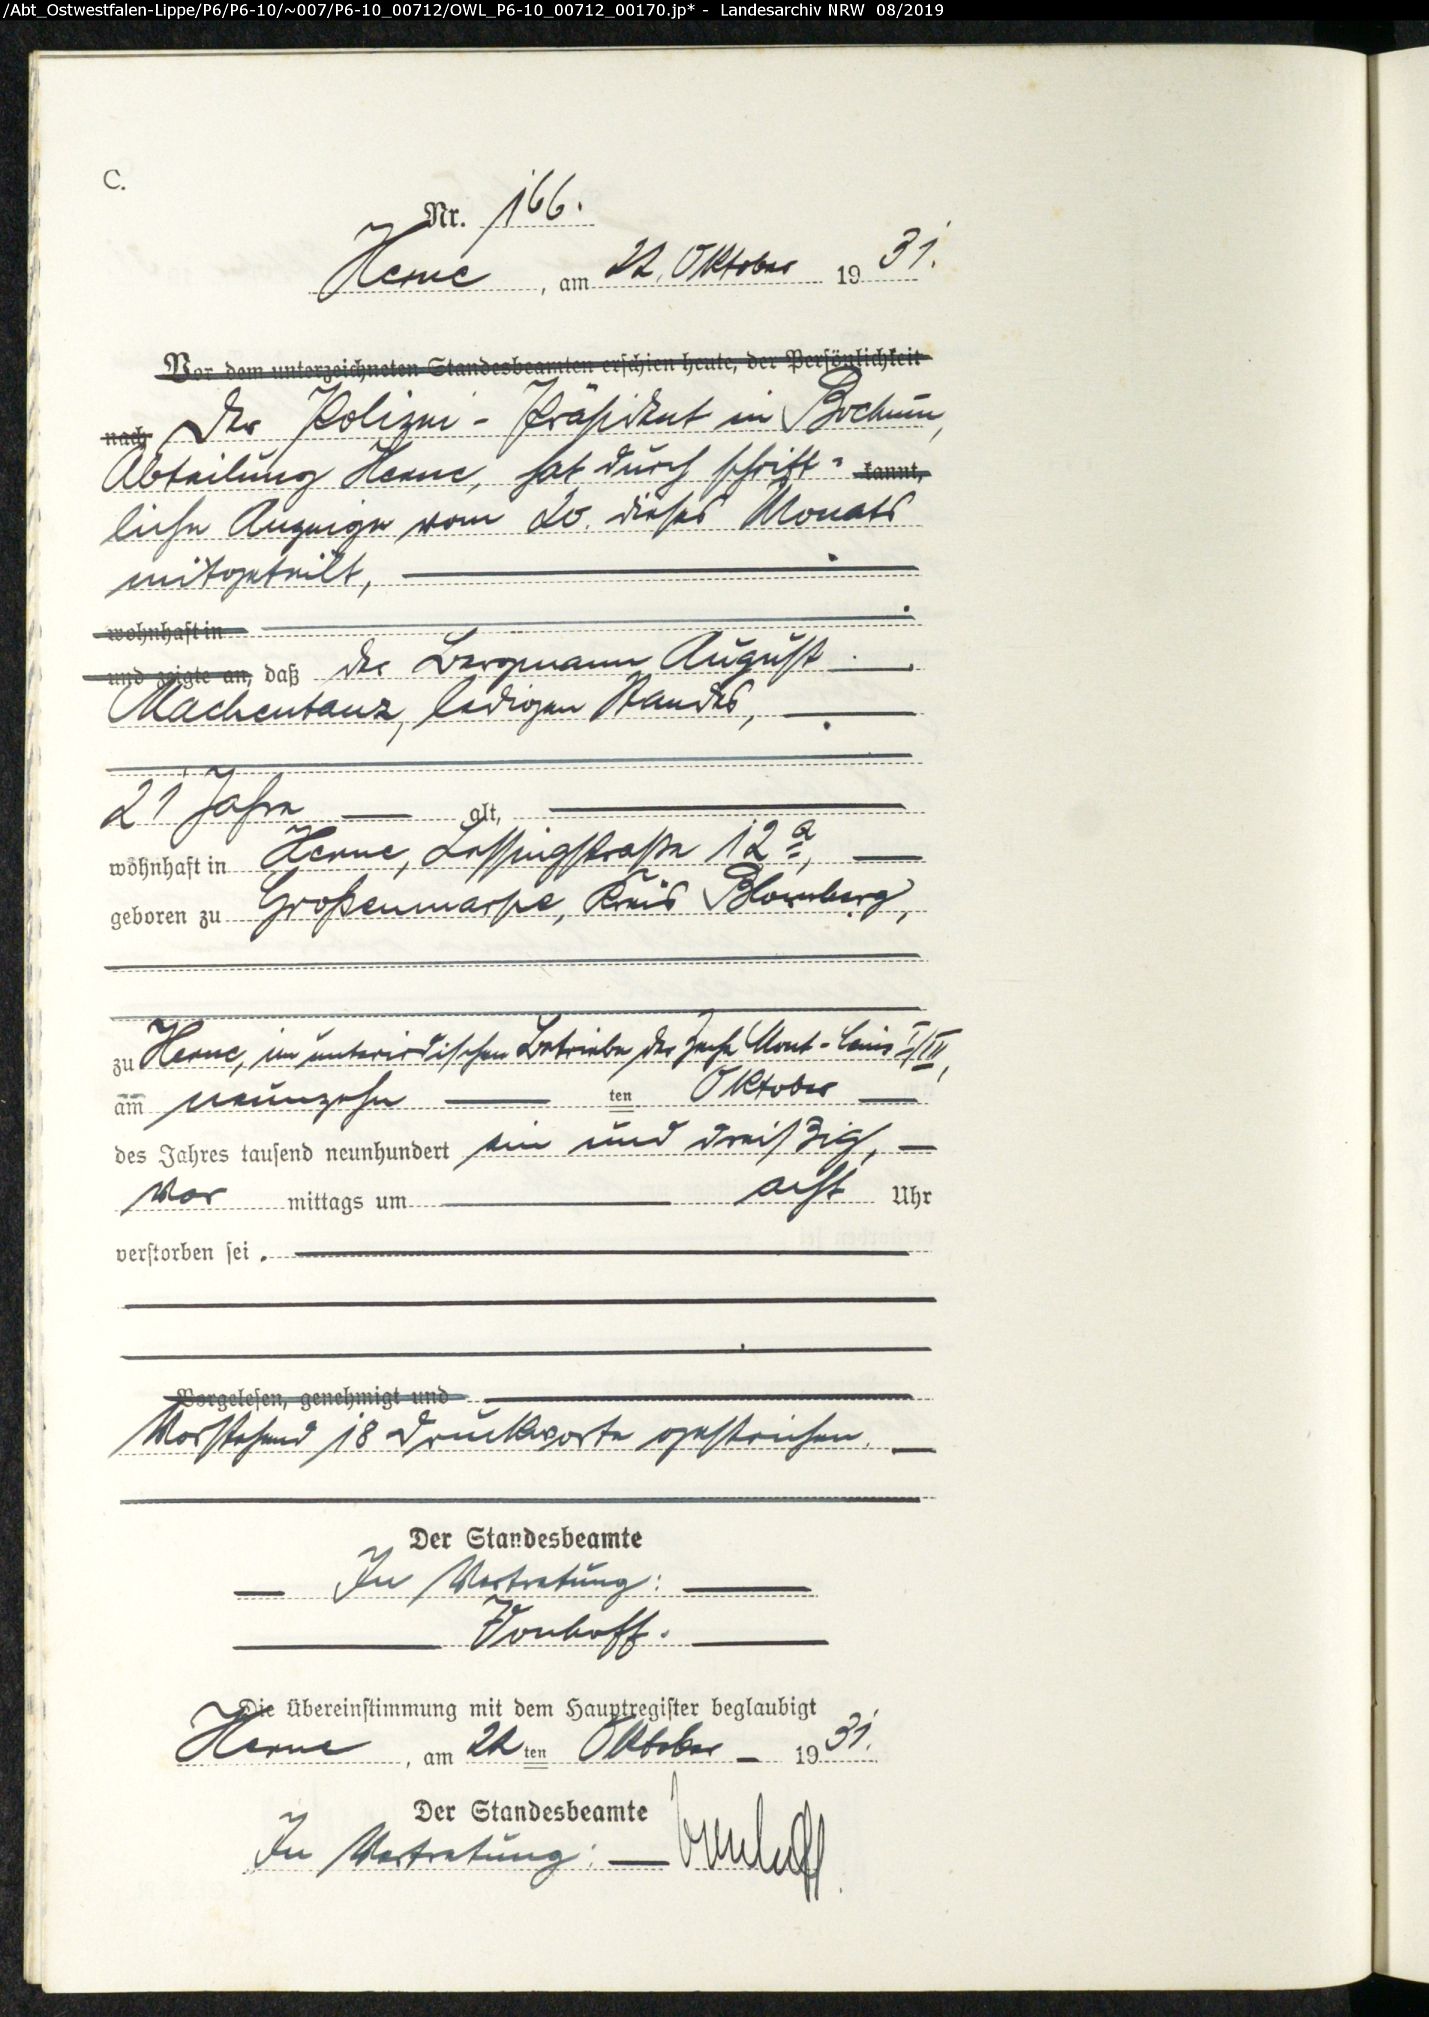 /Abt_Ostwestfalen-Lippe/P6/P6-10/~007/P6-10_00712/OWL_P6-10_00712_00170.jp* - Landesarchiv NRW 08/2019
C.
Nr. 166.
Herne, am 22. Oktober 1931.
Vor dem unterzeichneten Standesbeamten erschien heute, der Persönlichkeit
nach Der Polizei-Präsident in Bochum,
Abteilung Herne, hat durch schrift- kannt,
liche Anzeige vom 20. dieses Monats
mitgeteilt,
wohnhaft in
und zeigte an, daß der Bergmann August
Machentanz, ledigen Standes,
21 Jahre alt,
wohnhaft in Herne, Lessingstraße 12a,
geboren zu Großenmarpe, Kreis Blomberg,
zu Herne, im unterirdischen Betriebe der Zeche Mont-Cenis I/III,
am neunzehn ten Oktober
des Jahres tausend neunhundert ein und dreißig,
Vor mittags um acht Uhr
verstorben sei.
Vorgelesen, genehmigt und
Vorstehend 18 Druckworte gestrichen.
Der Standesbeamte
In Vertretung:
Vonhoff.
Die Übereinstimmung mit dem Hauptregister beglaubigt
Herne, am 22ten Oktober 1931.
Der Standesbeamte
In Vertretung: Vonhoff